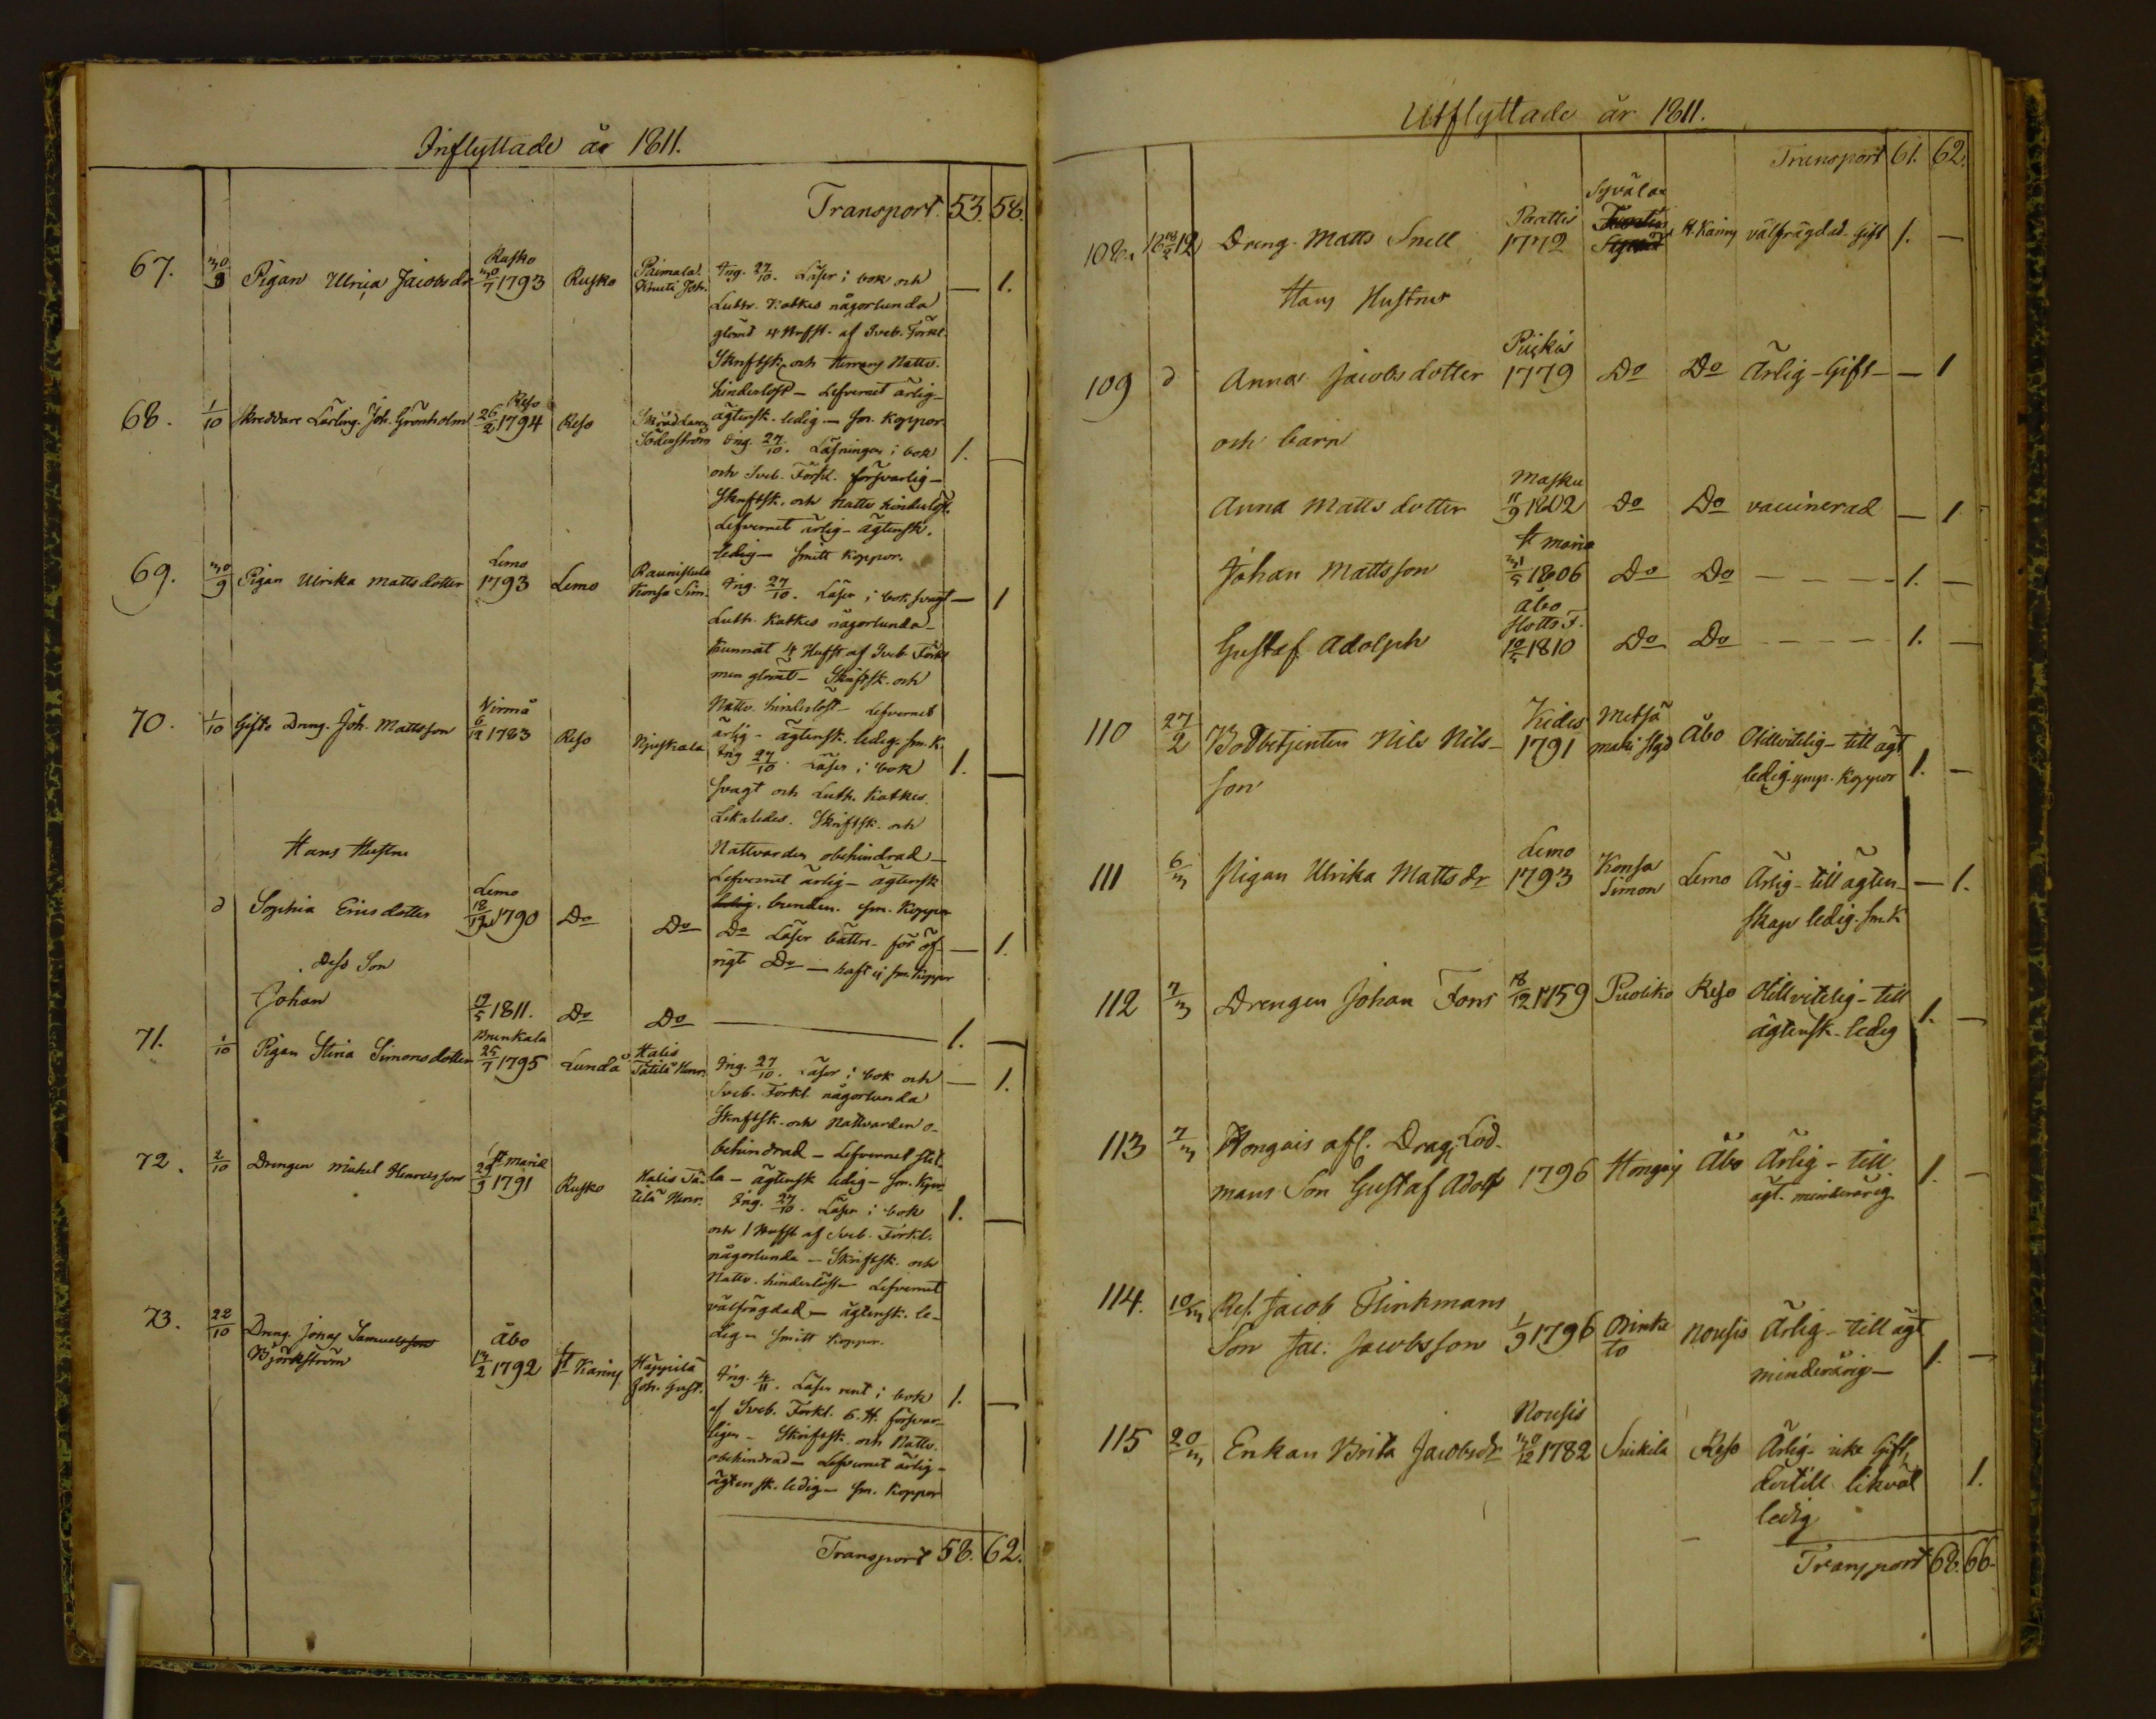 Inflyttade år 1811.
Transport. 53. 58.
67. 30/9 Pigan Ulrica Jacobsdr Rusko 30/7 1793 Rusko Paimala Knuti Joh. Ing. 27/10. Läser i bok och — 1.
Luthr. Katkes någorlunda
glömt 4 Hufst. af Sveb. Förkl.
Skriftsk. och Herrans Nattv.
hinderlöst — Lefvernet ärlig —
ägtensk. ledig — sm. Koppor.
68. 1/10 Skreddare Lärling. Joh. Grönholm Reso 26/2 1794 Reso Söderström Ing. 27/10. Läsningen i bok 1. —
och Sveb. Förkl. försvarlig —
Skriftsk. och Nattv. hinderlöst.
Lefvernet ärlig — ägtensk.
ledig — smitt Koppor.
69. 30/9 Pigan Ulrika Mattsdotter Lemo 1793 Lemo Raunistula Konsa Sim. Ing. 27/10. Läser i bok svagt — 1
Luth. Katkes någorlunda —
Kunnat 4 Hufst af Sveb. Förkl
men glömt — Skriftsk. och
Nattv. hinderlöst — Lefvernet
ärlig — ägtensk. ledig. sm. K.
70. 1/10 Gifte Dreng. Joh. Mattsson Virmå 6/12 1783 Reso Njuskala Ing 27/10. Läser i bok 1. —
svagt och Luth. Katkes.
Likaledes. Skriftsk. och
Nattvarden obehindrad —
Lefvernet ärlig — ägtensk
ledig. bunden. sm. Koppor
Hans Hustru
d Sophia Ericsdotter Lemo 18/12 1790 Do Do Do Läser bättre — för öf- — 1.
rigt Do — haft ej sm. Koppor
Dess Son
Johan 19/5 1811. Do Do — 1. —
71. 1/10 Pigan Stina Simonsdotter Brunkala 25/7 1795 Lundå Halis Tätilä Henr. Ing. 27/10. Läser i bok och — 1.
Sveb. Förkl. någorlunda
Skriftsk. och Nattvarden o-
behindrad — Lefvernet stil-
la — ägtensk ledig — sm. Kopor
72. 2/10 Drengen Michel Henricsson St Marie 29/9 1791 Rusko Halis Tä- tilä Henr. Ing. 27/10. Läser i bok 1. —
och 1 Hufst af Sveb. Förkl.
någorlunda — Skriftsk. och
Nattv. hinderlöst — Lefvernet
välfrägdad — ägtensk. le-
dig — smitt Koppor.
73. 22/10 Dreng. Jonas Samuelsson Björkström Åbo 13/2 1792 St Karins Häppilä Joh. Gust. Ing. 4/11. Läser rent i bok 1. —
af Sveb. Förkl. 6. H. försvar-
ligen — Skriftsk. och Nattv.
obehindrad — Lefvernet ärlig —
ägtensk. ledig — sm. Koppor
Transport 58. 62.
Utflyttade år 1811.
Transport 61. 62.
108. Dreng. Matts Snell 1772 Syväla St. Karins välfrägdad. Gift 1. —
Hans Hustru
109 d Anna Jacobsdotter Piikis 1779 Do Do Ärlig — Gift — — 1
och barn
Anna Mattsdotter Masku 11/9 1802 Do Do vaccinerad — 1
Johan Mattsson St Marie 31/5 1806 Do Do — — — 1. —
Gustaf Adolph Åbo Slotts F. 10/5 1810 Do Do — — — 1. —
110 27/2 Bodbetjenten Nils Nils- Kides 1791 Metsä maki Åbo Otillvitelig — till ägt
son ledig ymp. Koppor 1. —
111 6/3 Pigan Ulrika Mattsdr Lemo 1793 Konsa Simon Lemo Ärlig — till ägten- — 1.
skap ledig. sm. K
112 7/3 Drengen Johan Fors 18/12 1759 Puoliko Reso Otillvitelig — till
ägtensk. ledig 1. —
113 7/3 Hongais afl. Drag. Lod-
mans Son Gustaf Adolf 1796 Hongais Åbo Ärlig — till
ägt. minderårig 1. —
114. 10/3 Jacob Flinkmans
Son Jac. Jacobsson 1/9 1796 Nousis Ärlig — till ägt
minderårig — 1. —
115 20/3 Enkan Brita Jacobsdr Nousis 30/12 1782 Suikila Reso Ärlig — icke Gift,
dertill likväl 1.
ledig
Transport 68. 66.